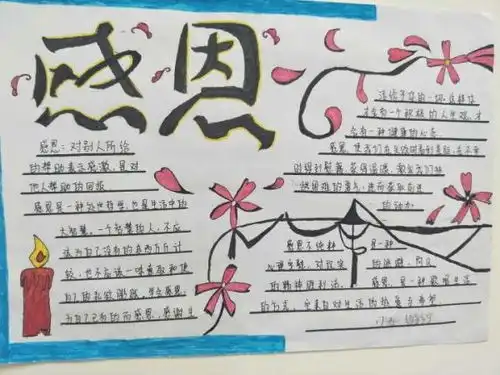 感恩
感恩：对别人所给
的帮助表示感激，是对
他人帮助的回报
感恩是一种处世哲学，也是生活中的
大智慧，一个智慧的人，不应
该为自己没有的斤斤计
较，也不应该一味索取和使
自己的私欲膨胀，学会感恩
为自己已有的而感恩，感谢生
活给予你的一切，这样你
才会有一个积极的人生观，才
会有一种健康的心态
感恩，使我们在失败时看到差距，在不幸
时得到慰藉，获得温暖，激发我们挑
战困难的勇气，进而获取前进
的动力
感恩不纯粹是一种
心理安慰，对现实的逃避，阿Q
的精神胜利法，感恩，是一种歌唱生活
的方式，它来自对生活的热爱与希望